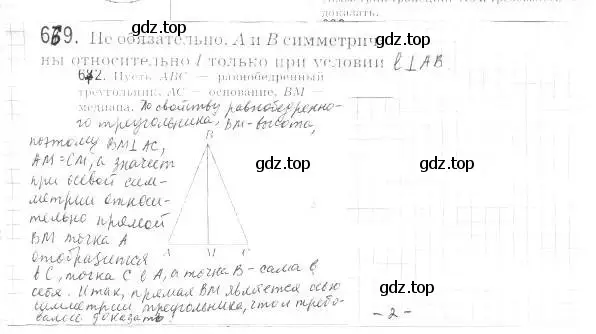 доказать.
669. Не обязательно. A и B симметрич-
ны относительно l только при условии l⊥AB.
672. Пусть ABC — равнобедренный
треугольник, AC — основание, BM —
медиана. По свойству равнобедренно-
го треугольника, BM-высота,
поэтому BM⊥AC,
AM=CM, а значит
при осевой сим-
метрии относи-
тельно прямой
BM точка A
отобразится
в C, точка C в A, а точка B - сама в
себя. Итак, прямая BM является осью
симметрии треугольника, что и требо-
валось доказать.
B
A M C
- 2 -
gdz.top gdz.top gdz.top
gdz.top gdz.top gdz.top
gdz.top gdz.top gdz.top
gdz.top gdz.top gdz.top